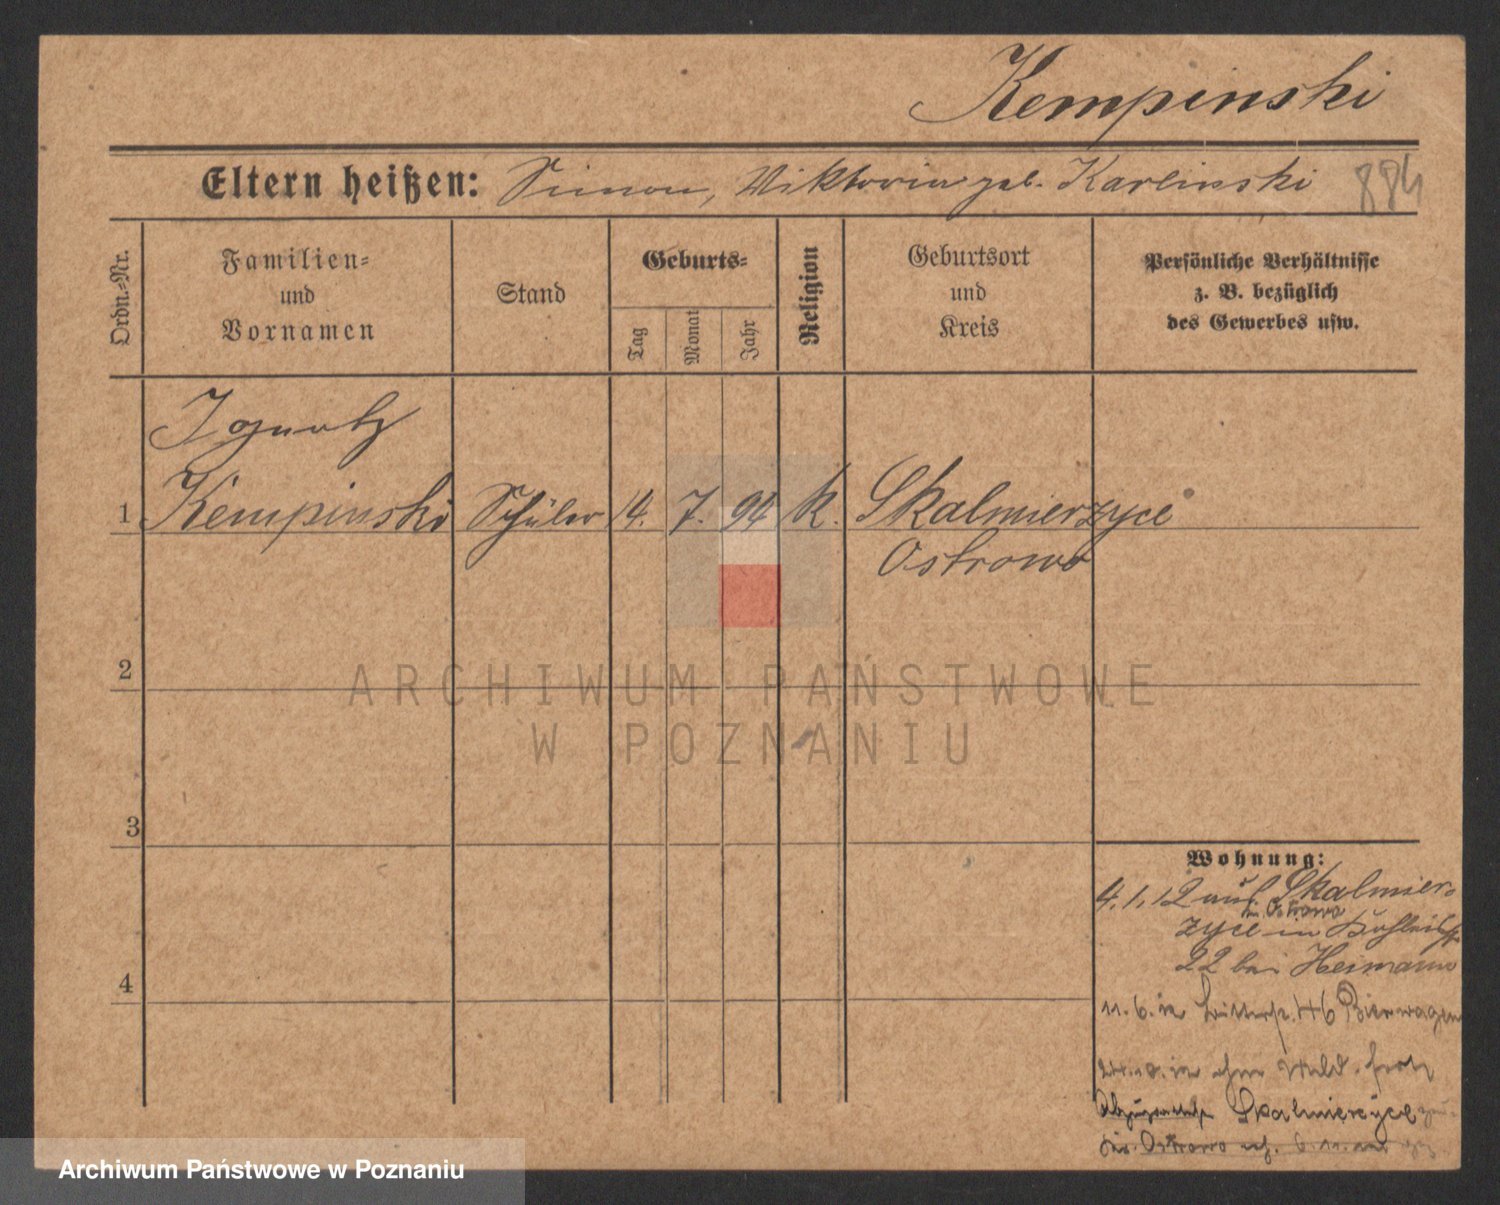 Kempinski
Eltern heißen: Simon, Viktoria geb. Karlinski 884
Ordn.-Nr.
Familien-
und
Vornamen
Stand
Geburts-
Tag
Monat
Jahr
Religion
Geburtsort
und
Kreis
Persönliche Verhältnisse
z. B. bezüglich
des Gewerbes usw.
Ignatz
1 Kempinski Schüler 14. 7. 94 k. Skalmierzyce
Ostrowo
2
3
4
Wohnung:
4.1.12 aus Skalmier-
in Ostrowo
zyce in
22 bei Heimann
11. 6. in 46 Bierwagen
24. in
Skalmierzyce
Ostrowo 6. 11.
ARCHIWUM PAŃSTWOWE
W POZNANIU
Archiwum Państwowe w Poznaniu